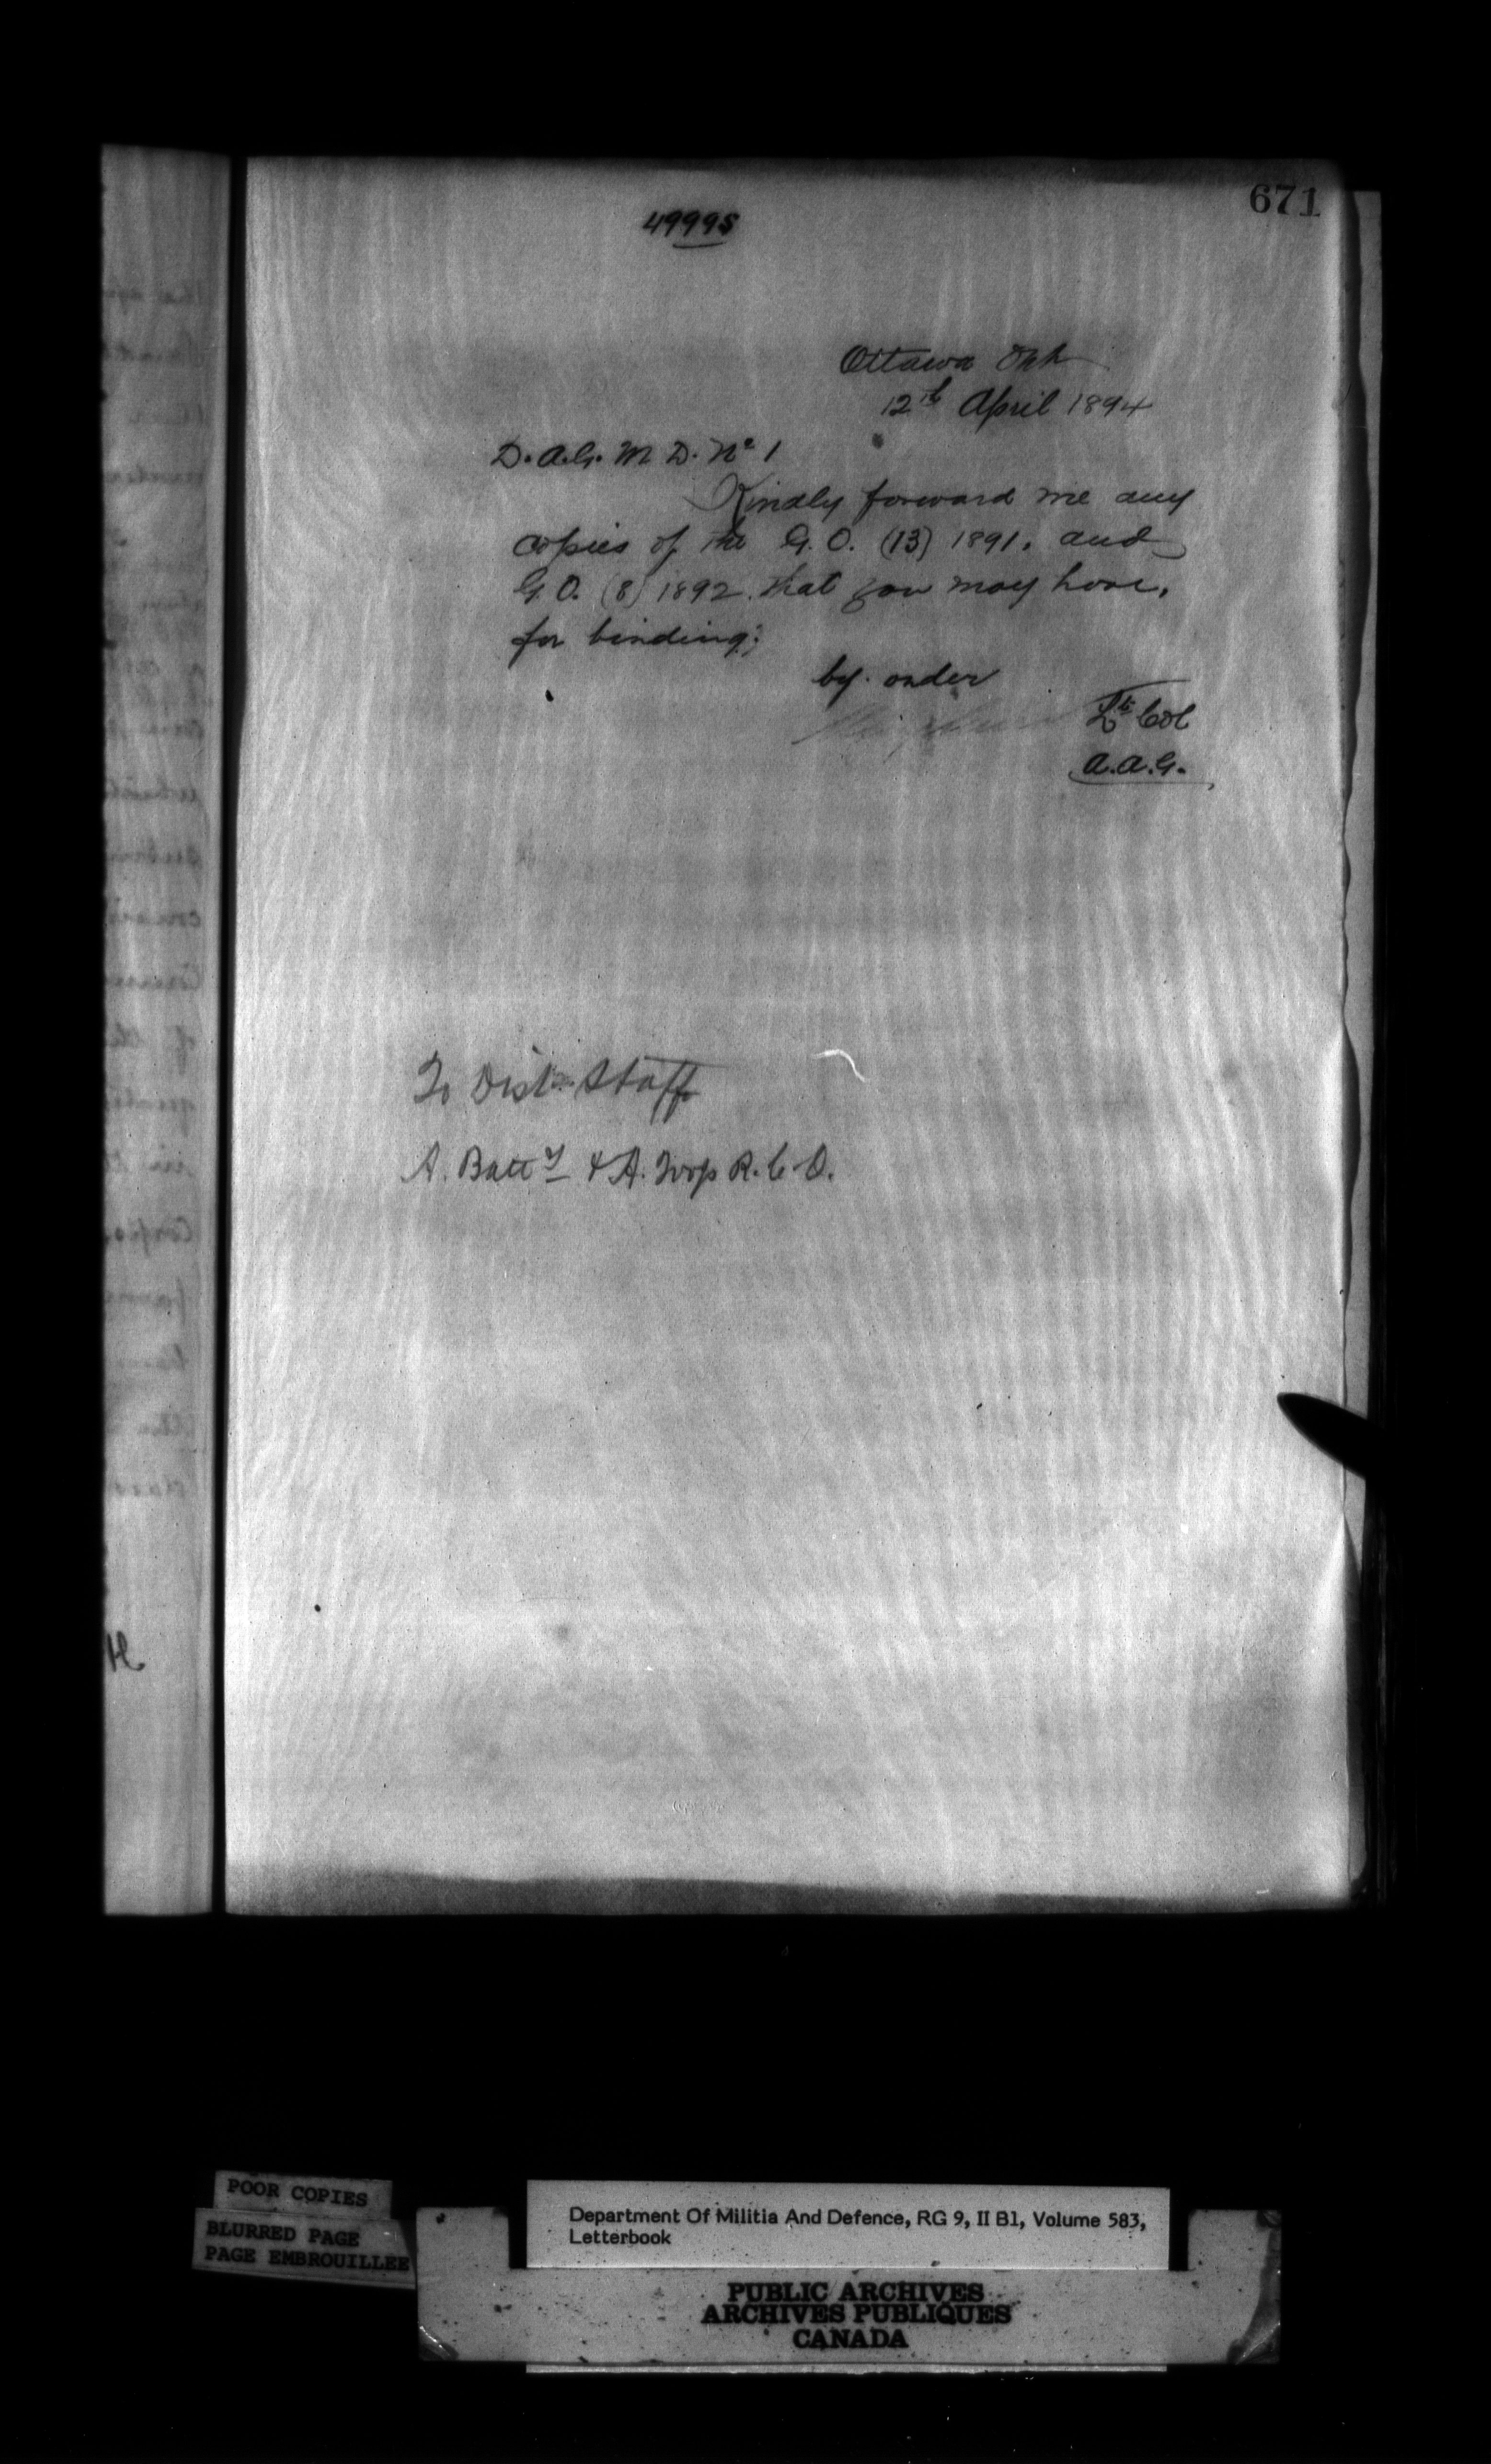 671
49995
Ottawa Ont
12th April 1894
D.A.G. M D. No 1
Kindly forward me any
copies of the G.O. (13) 1891, and
G.O. (8) 1892 that you may have,
for binding;
by order
Lt Col
A.A.G.
To Dist. Staff
A. Batty & A. Troop R.C.D.
POOR COPIES
BLURRED PAGE
PAGE EMBROUILLEE
Department Of Militia And Defence, RG 9, II B1, Volume 583,
Letterbook
PUBLIC ARCHIVES
ARCHIVES PUBLIQUES
CANADA